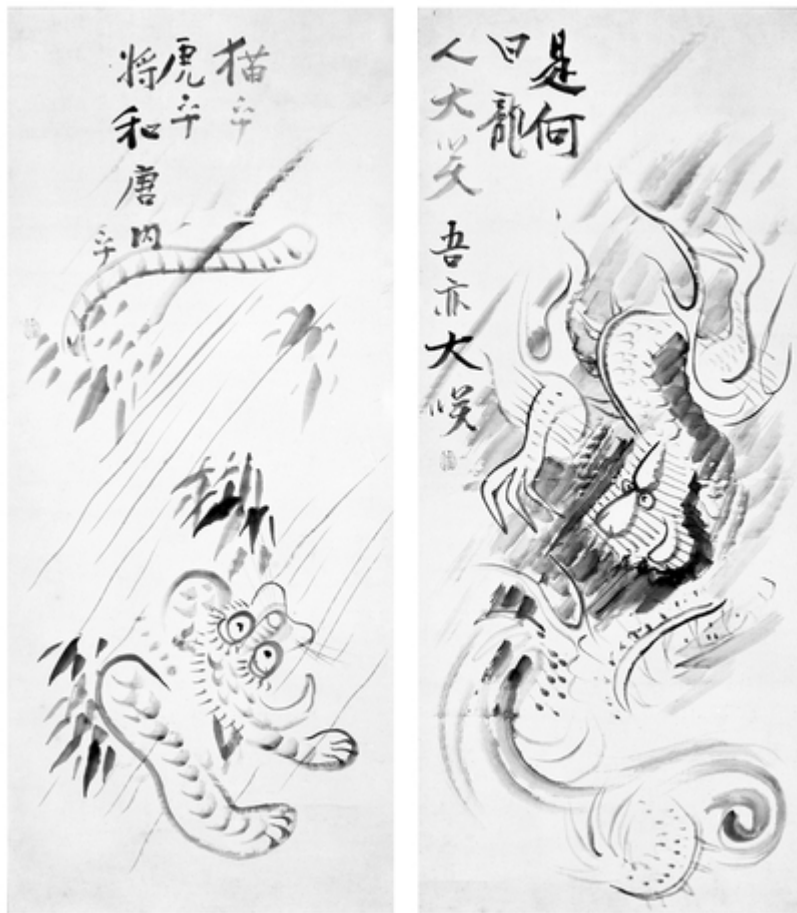 是何
曰龍
人大笑 吾亦大咲
猫乎
虎乎
将和唐内乎